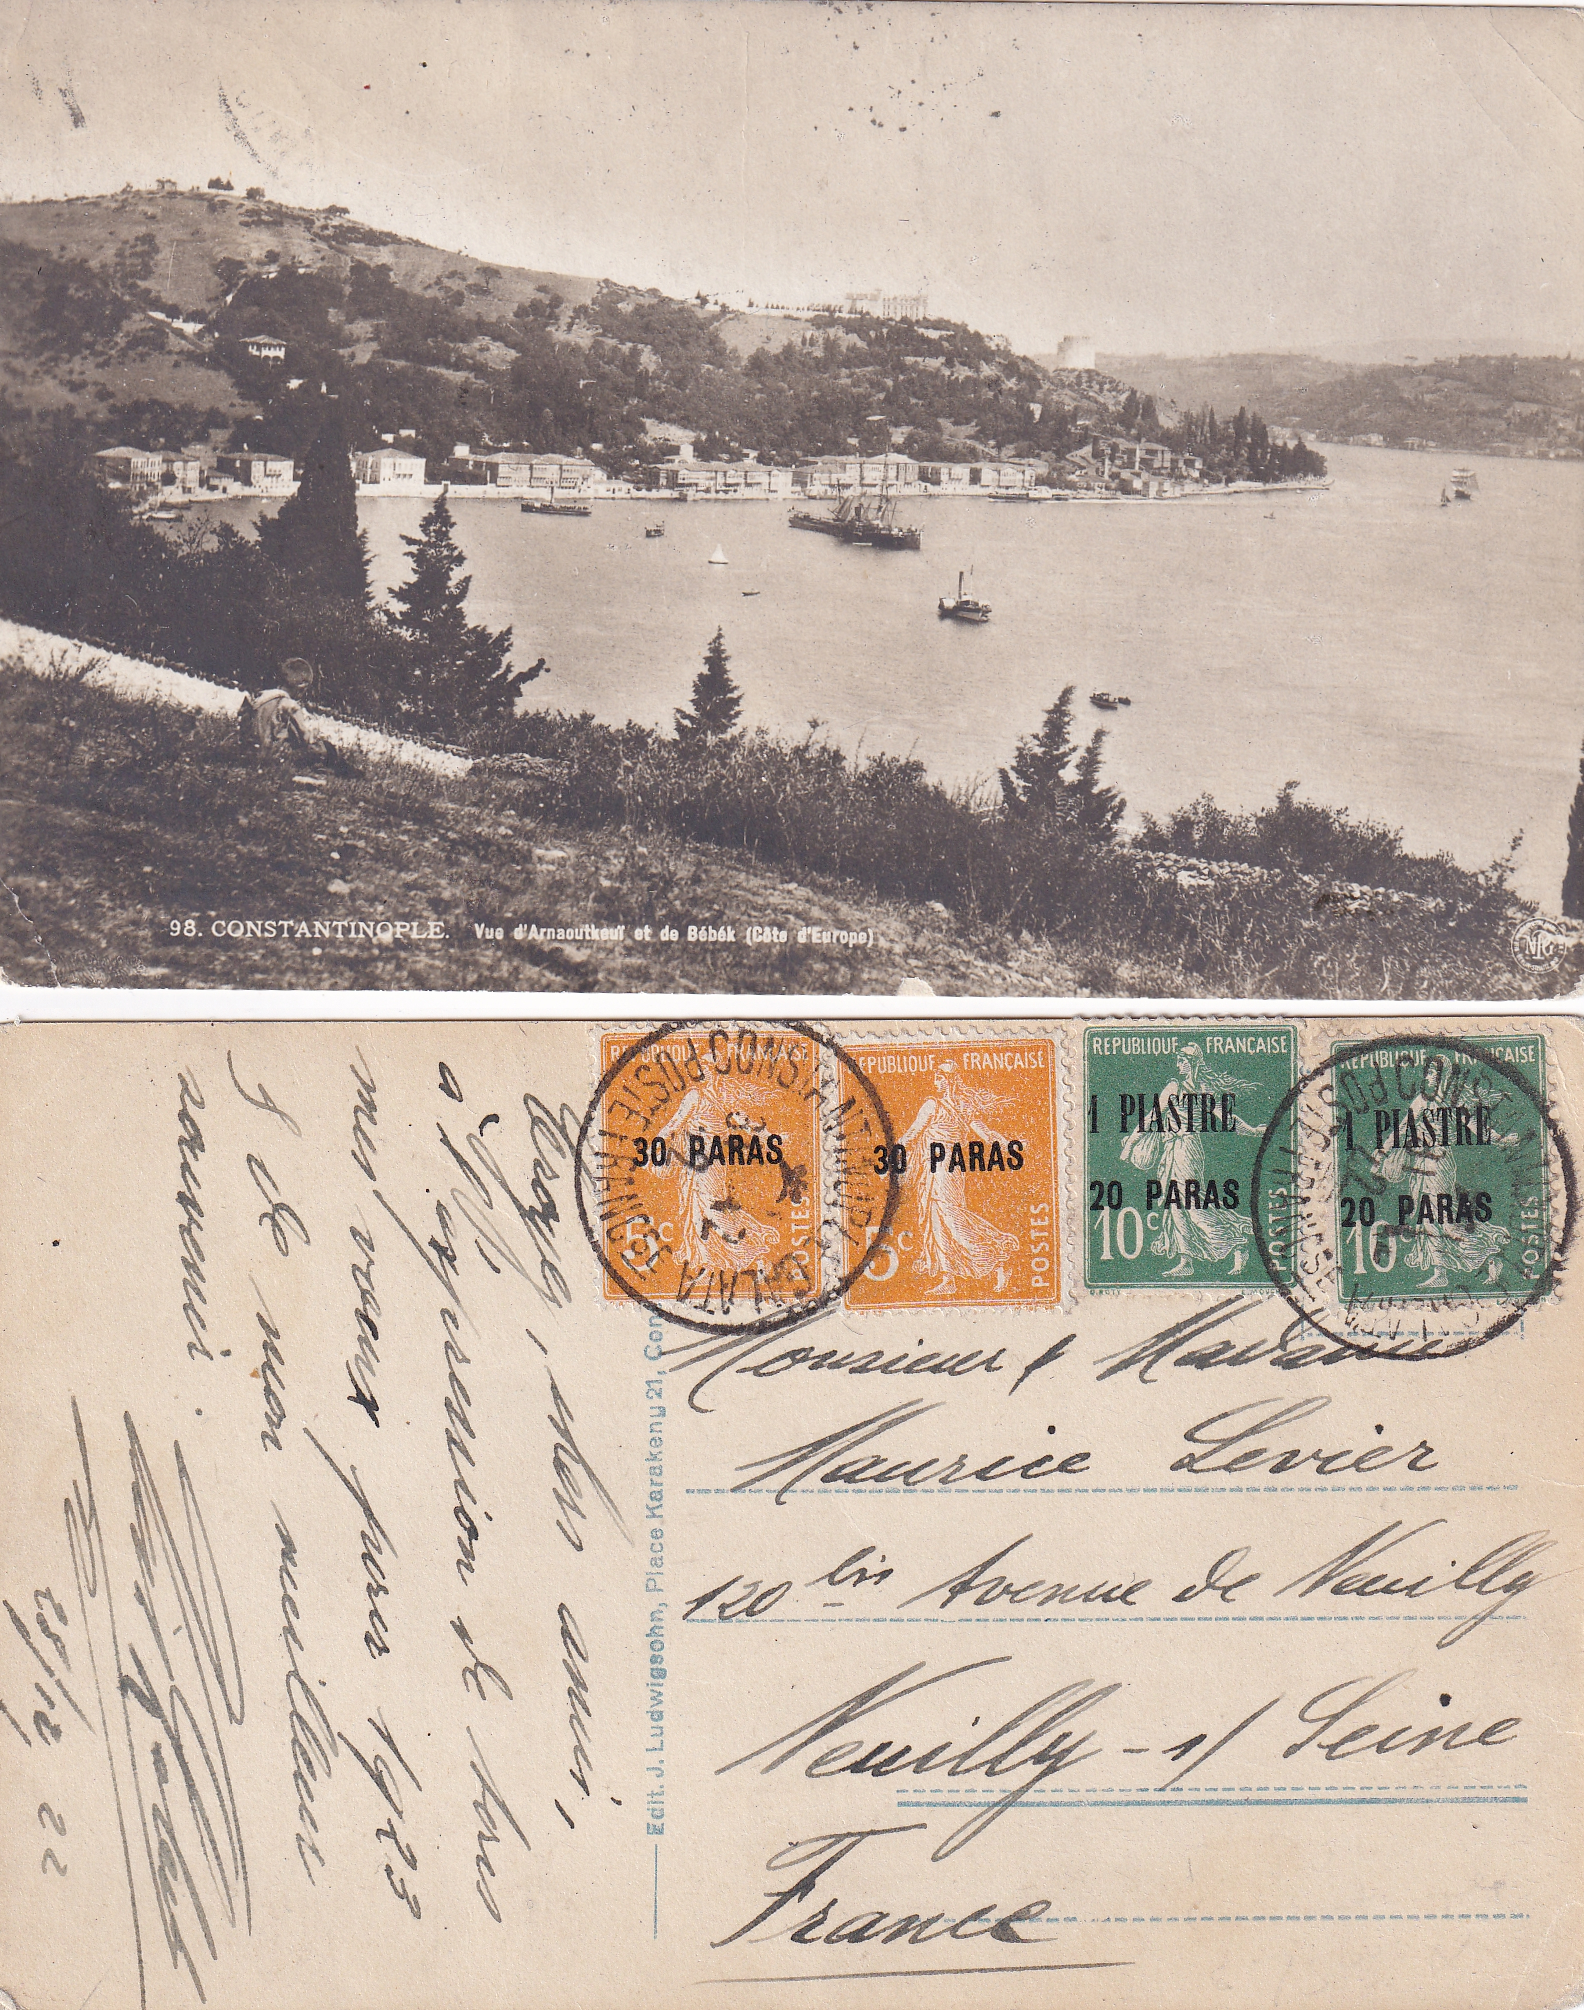 98. CONSTANTINOPLE. Vue d'Arnaoutkeuï et de Bébék (Côte d'Europe)
NPG
REPUBLIQUE FRANÇAISE
30 PARAS
5c
POSTES
REPUBLIQUE FRANÇAISE
30 PARAS
5c
POSTES
REPUBLIQUE FRANÇAISE
1 PIASTRE
20 PARAS
10c
POSTES
REPUBLIQUE FRANÇAISE
1 PIASTRE
20 PARAS
10c
POSTES
CONSTANTINOPLE GALATA
POSTE FRANÇAISE
CONSTANTINOPLE GALATA
POSTE FRANÇAISE
Croyez, chers amis,
à l'expression de tous
mes vœux pour 1923
& de mon meilleur
souvenir.
28/12 22
Edit. J. Ludwigsohn, Place Karakeny 21, Con
Monsieur & Madame
Maurice Levier
120 bis Avenue de Neuilly
Neuilly-s/Seine
France